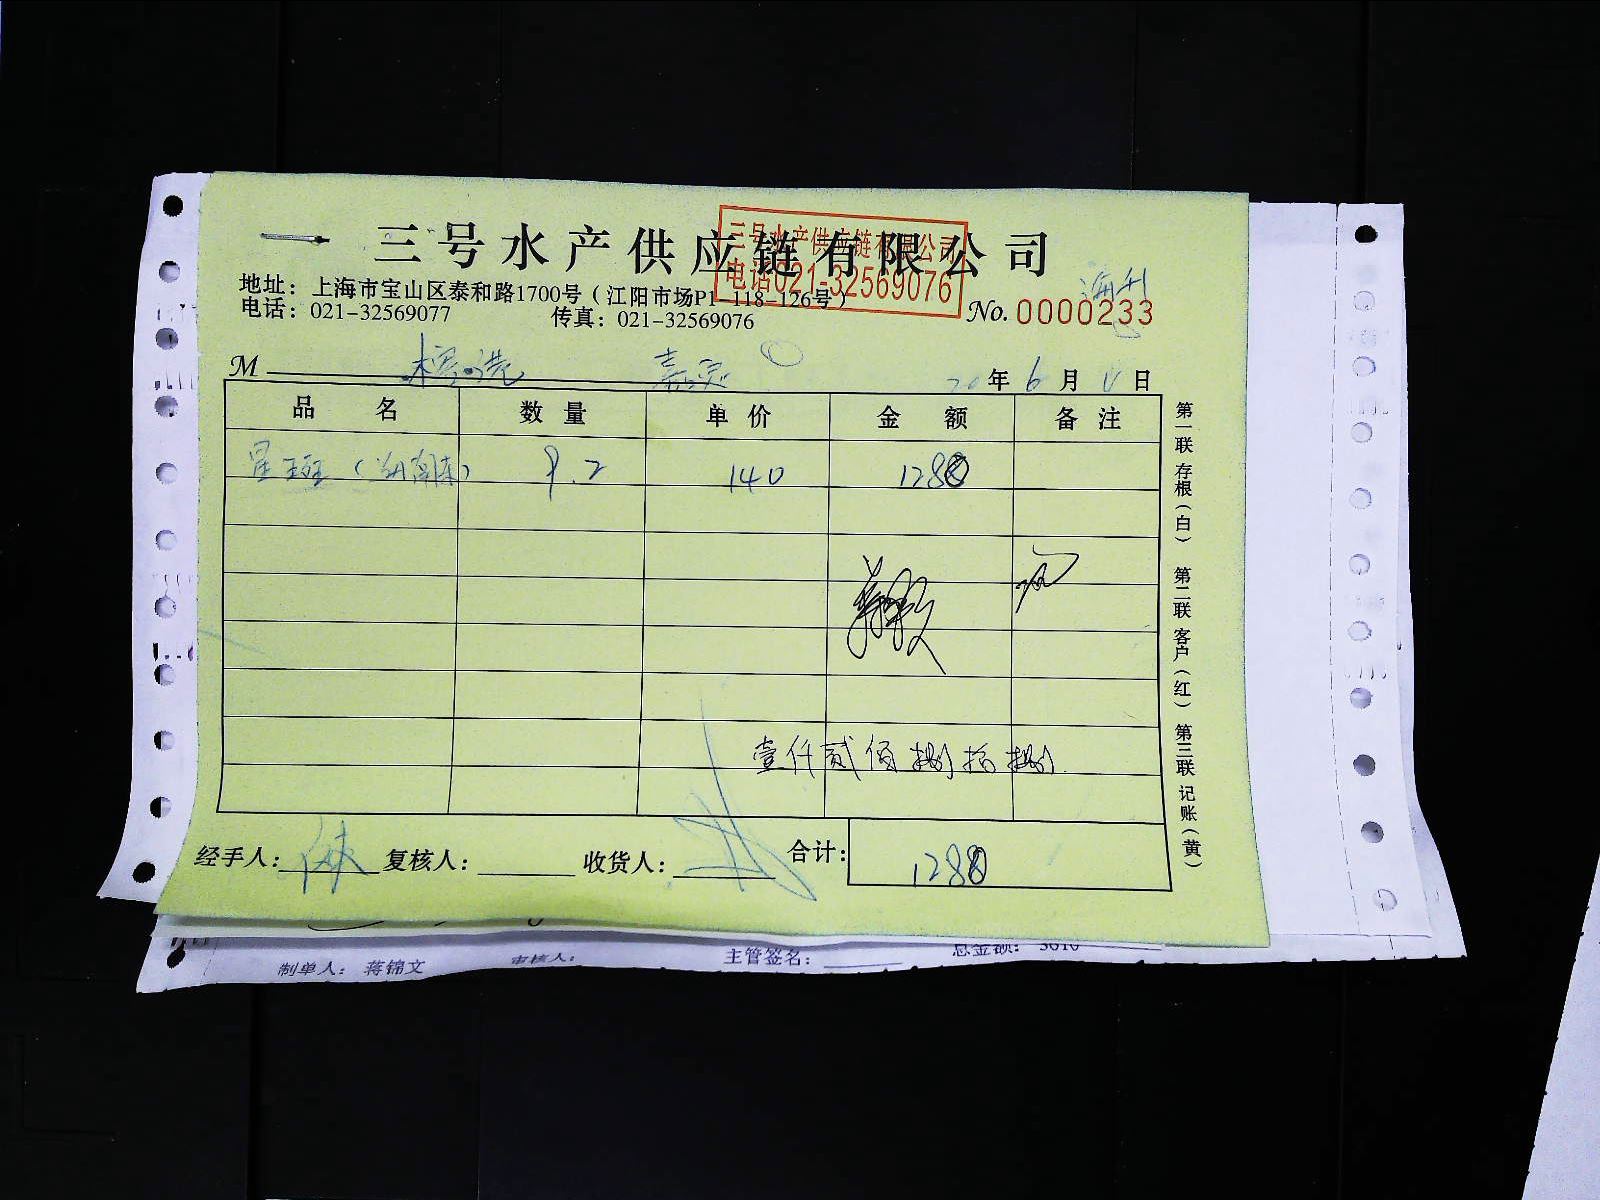 三号水产供应链有限公司
三号水产供应链有限公司
电话021-32569076
地址：上海市宝山区泰和路1700号（江阳市场P1-118-126号）
电话：021-32569077 传真：021-32569076
No. 0000233
M 20年6月 日
品名 数量 单价 金额 备注
星斑 9.2 140 1288
壹仟贰佰捌拾捌
经手人： 复核人： 收货人： 合计： 1288
第一联 存根（白） 第二联 客户（红） 第三联 记账（黄）
制单人： 蒋锦文 审核人： 主管签名： 总金额： 3010